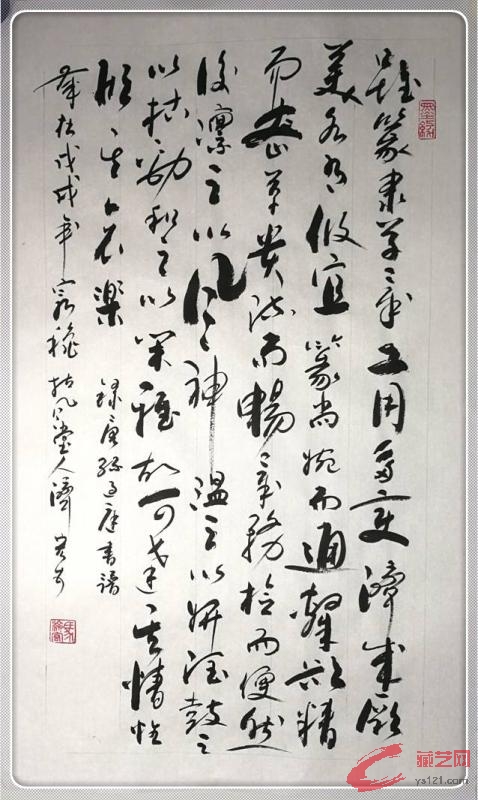 雖篆隸草章工用多變濟成厥
美各有攸宜篆尚婉而通隸欲精
而密草貴流而暢章務檢而便然
後凜之以風神溫之以妍潤鼓之
以枯勁和之以閑雅故可達其情性
形其哀樂 錄唐孫過庭書譜
歲在戊戌年
藏艺网
ys121.com